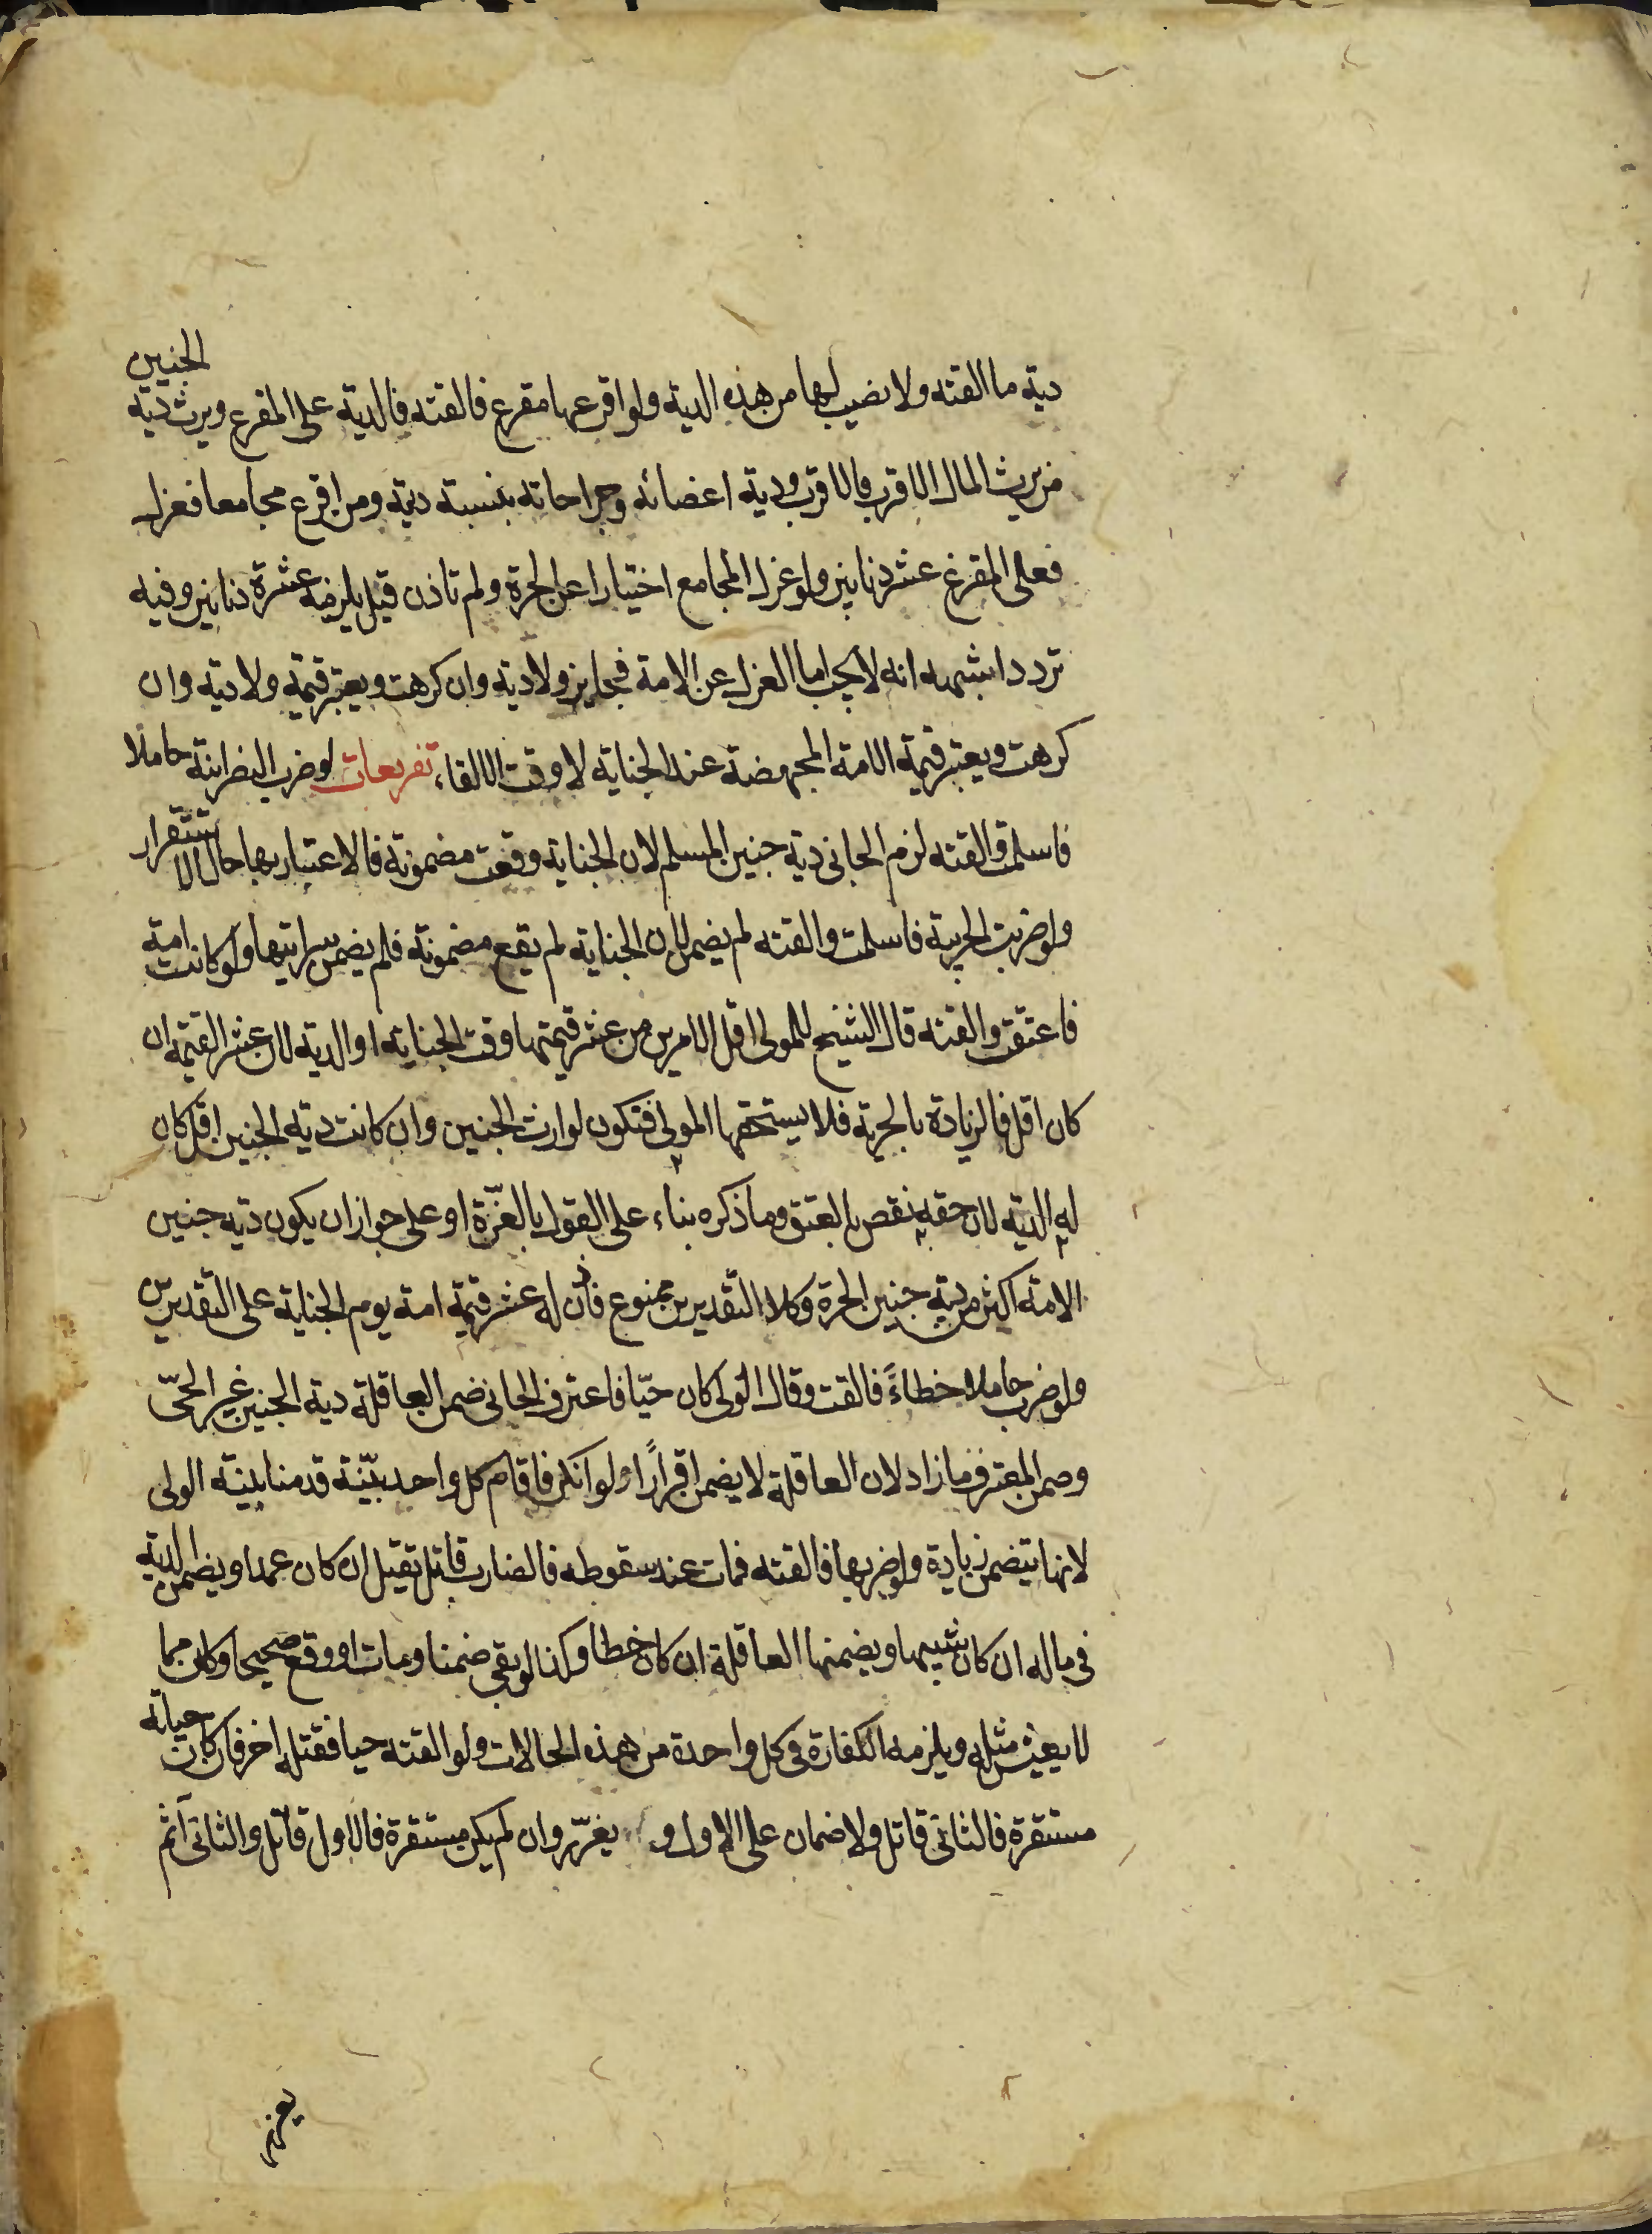 دية ما القته ولا نصيب لها من هذه الدية ولو افزعها مفزع فالقته فالدية على المفزع ويرث دية الجنين
من يرث المال الاقرب فالاقرب ودية اعضائه وجراحاته بنسبة ديته ومن افزع مجامعا فعزل
فعلى المفزع عشر دنانير ولو عزل المجامع اختيارا عن الحرة ولم تاذن قيل يلزمه عشرة دنانير وفيه
تردد اشبهه انه لا يجب اما العزل عن الامة فجايز ولا دية وان كرهت ويعتبر قيمة ولا دية وان
كرهت ويعتبر قيمة الامة المجهضة عند الجناية لا وقت الالقاء تفريعات لو ضرب النصرانية حاملا
فاسلمت والقته لزم الجانى دية جنين المسلم لان الجناية وقعت مضمونة فالاعتبار بها حال الاستقرار
ولو ضربت الحربية فاسلمت والقته لم يضمن لان الجناية لم يقع مضمونة فلم يضمن سرايتها ولو كانت امة
فاعتقت والقته قال الشيخ للمولى اقل الامرين من عشر قيمتها وقت الجناية او الدية لان عشر القيمة ان
كان اقل فالزيادة بالحرية فلا يستحقها المولى فتكون لوارث الجنين وان كانت دية الجنين اقل كان
له الدية لان حقه نقص بالعتق وما ذكره بناء على القول بالغرّة او على جواز ان يكون دية جنين
الامة اكثر من دية جنين الحرة وكلا التقديرين ممنوع فأذن له عشر قيمة امة يوم الجناية على التقديرين
ولو ضرب حاملا خطاءً فالقت وقال الولى كان حيّا فاعترف الجانى ضمن العاقلة دية الجنين غير الحىّ
وضمن المعترف ما زاد لان العاقلة لا يضمن اقرارًا ولو انكر فاقام كل واحد بيّنة قدمنا بينة الولى
لانها تتضمن زيادة ولو ضربها فالقته فمات عند سقوطه فالضارب قاتل يقتل ان كان عمدا ويضمن الدية
فى ماله ان كان شبيها ويضمنها العاقلة ان كان خطا وكذا لو بقى ضمنا ومات او وقع صحيحا وكان مما
لا يعيش مثله ويلزمه الكفارة فى كل واحدة من هذه الحالات ولو القته حيا فقتله اخر فان كان حياته
مستقرة فالثانى قاتل ولا ضمان على الاول و يغرّر وان لم يكن مستقرة فالاول قاتل والثانى آثم
يعزر